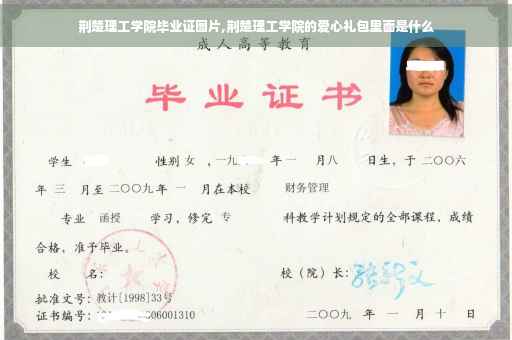 荆楚理工学院毕业证图片,荆楚理工学院的爱心礼包里面是什么
成人高等教育
毕业证书
学生 性别 女 ,一九 年一 月八 日生，于二〇〇六
年 三 月至二〇〇九年 一 月在本校 财务管理
专业 函授 学习，修完 专 科教学计划规定的全部课程，成绩
合格，准予毕业。
校 名： 校（院）长：
批准文号：教计[1998]33号
证书编号： 06001310 二〇〇九 年 一 月 十 日